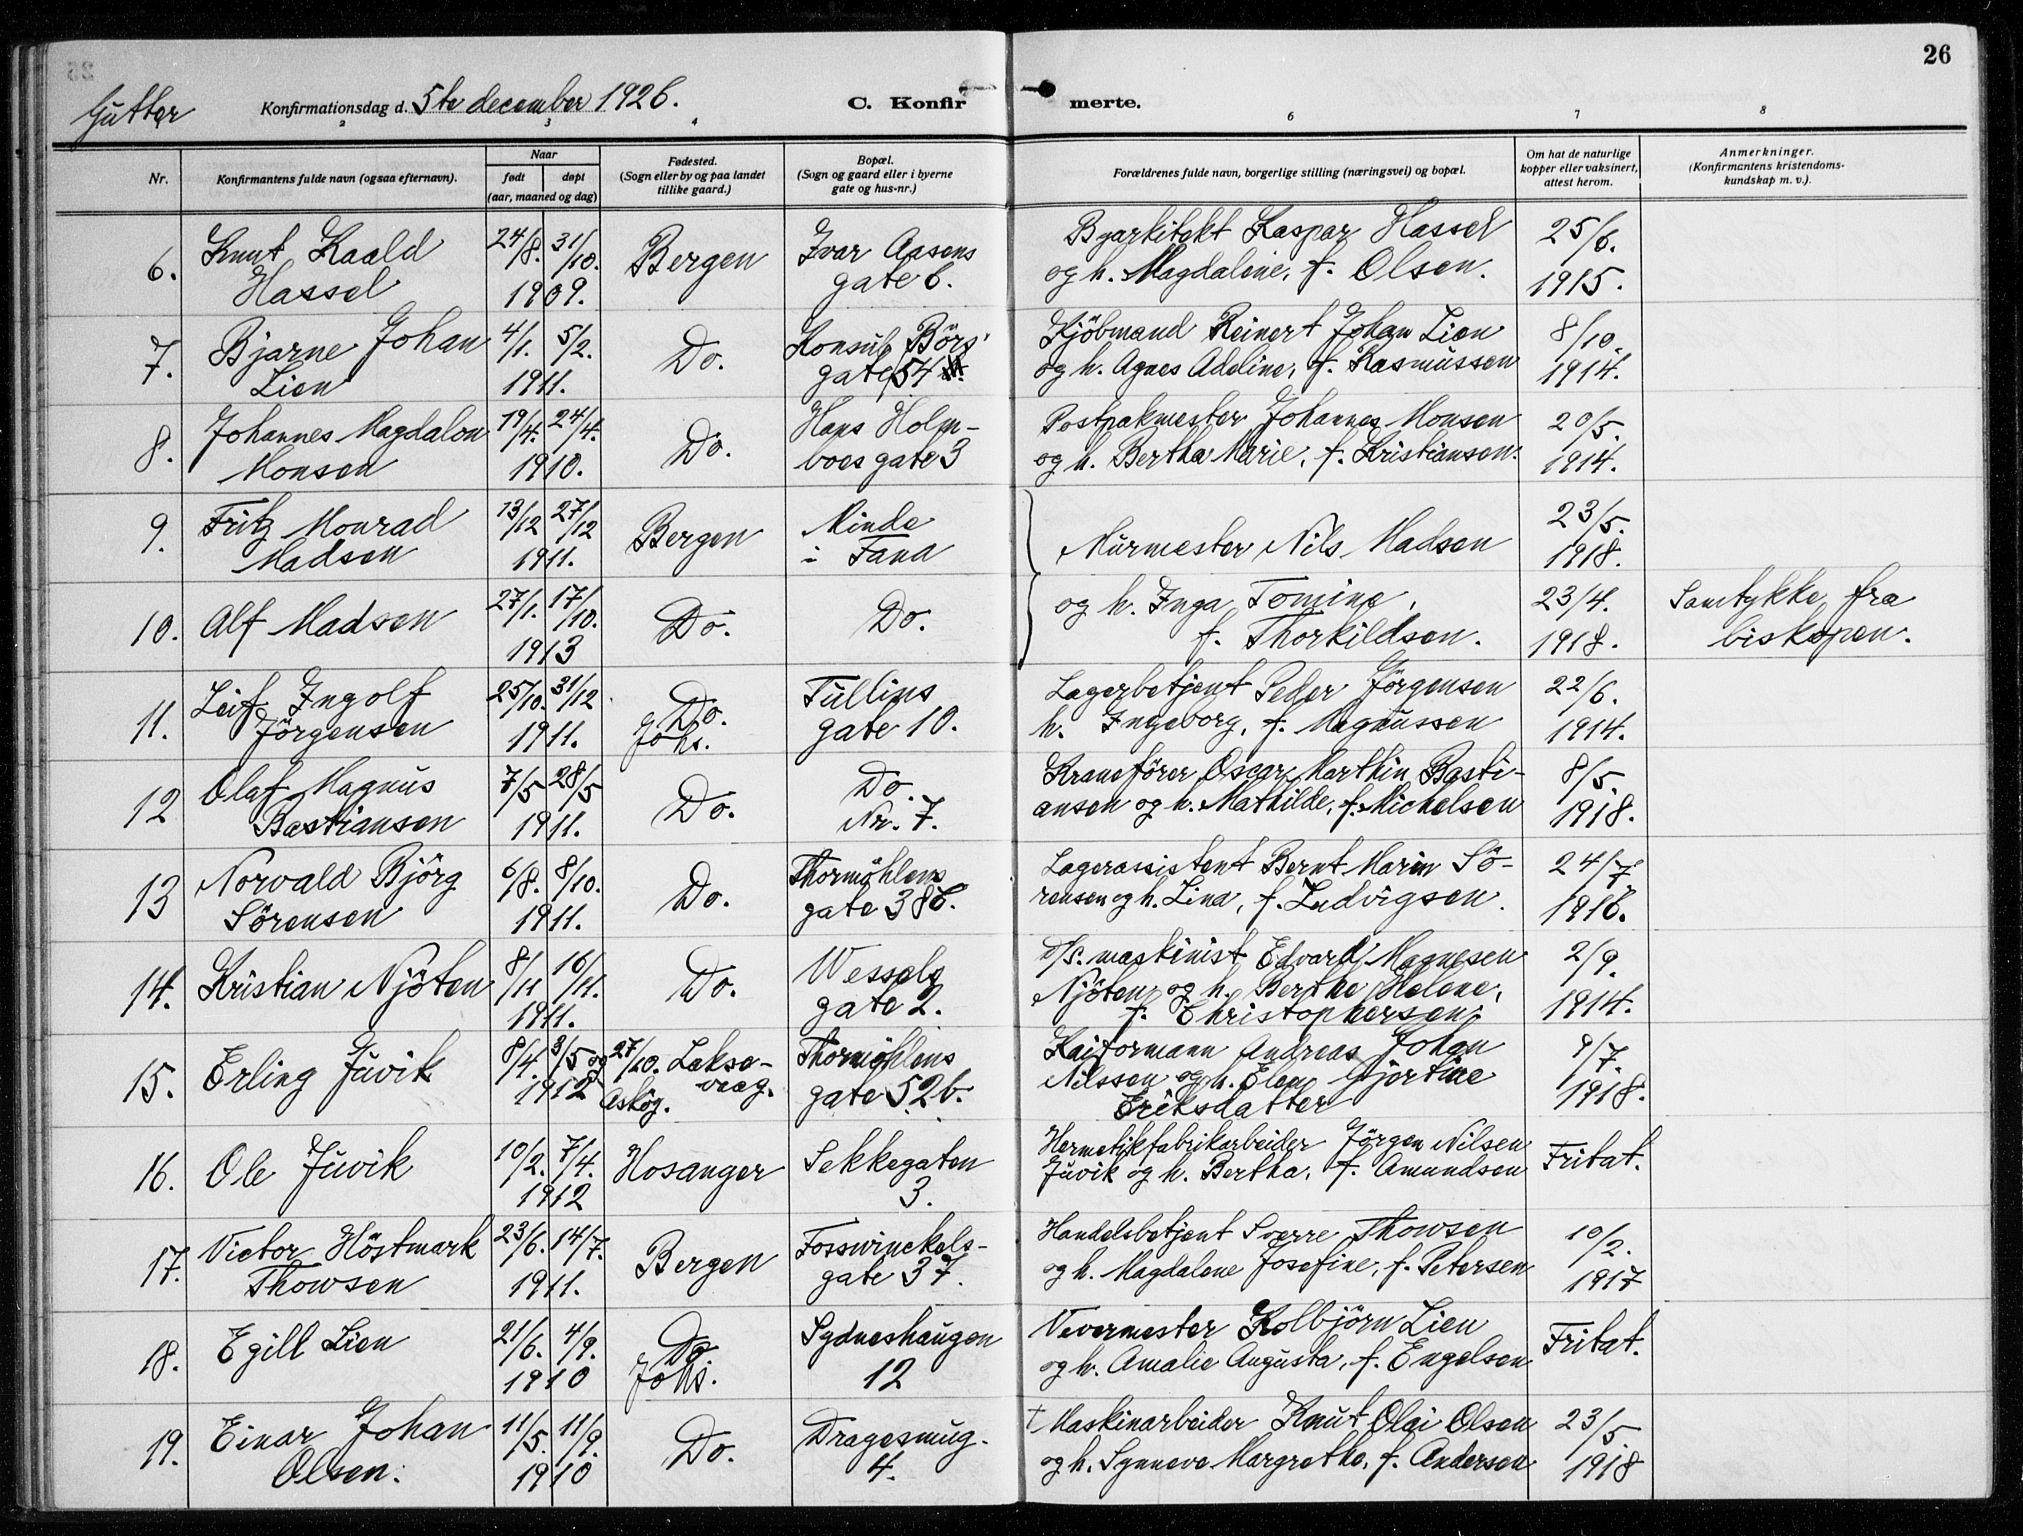 26
Gutter
Konfirmationsdag d. 5te december 1926.
C. Konfirmerte.
2 3 4 6 7 8
Nr.
Konfirmantens fulde navn (ogsaa efternavn).
Naar
født døpt
(aar, maaned og dag)
Fødested.
(Sogn eller by og paa landet
tillike gaard.)
Bopæl.
(Sogn og gaard eller i byerne
gate og hus-nr.)
Forældrenes fulde navn, borgerlige stilling (næringsvei) og bopæl.
Om hat de naturlige
kopper eller vaksinert,
attest herom.
Anmerkninger.
(Konfirmantens kristendoms-
kundskap m. v.).
6. Knut Kaald 24/8. 31/10. Bergen Ivar Aasens Byarkitekt Kaspar Hassel 25/6.
Hassel 1909. gate 6. og h. Magdalene, f. Olsen. 1915.
7. Bjarne Johan 4/1. 5/2. Do. Konsul Börs' Kjöbmand Reinert Johan Lien 8/10.
Lien 1911. gate 54 og h. Agnes Adeline, f. Rasmussen 1914.
8. Johannes Magdalon 19/4. 24/4. Do. Hans Holm- Postpakmester Johannes Monsen 20/5.
Monsen 1910. boes gate 3 og h. Bertha Marie, f. Kristiansen. 1914.
9. Fritz Monrad 13/12 27/12 Bergen Minde Murmester Nils Madsen 23/5.
Madsen 1911. i Fana 1918.
10. Alf Madsen 27/1. 17/10. Do. Do. og h. Inga Tomine, 23/4. Samtykke fra
1913 f. Thorkildsen. 1918. biskopen.
11. Leif Ingolf 25/10. 31/12 Do. Tullins Lagerbetjent Peder Jörgensen 22/6.
Jörgensen 1911. Johs. gate 10. h. Ingeborg, f. Magnussen 1914.
12 Olaf Magnus 7/5 28/5 Do. Do. Kranefører Oscar Marthin Basti- 8/5.
Bastiansen 1911. Nr. 7. ansen og h. Mathilde, f. Michelsen 1918.
13 Norvald Bjórg 6/8. 8/10. Do. Thormöhlens Lagerassistent Bernt Marin Sö- 24/7
Sörensen 1911. gate 38b. rensen og h. Lina, f. Ludvigsen. 1916.
14. Kristian Njöten 8/11 16/11. Do. Wessels d/s. maskinist Edvard Magnesen 2/9.
1911. gate 2. Njöten og h. Berthe Helene, 1914.
f. Christophersen.
15. Erling Juvik 8/4. 3/5 og 27/10. Lakse- Thormöhlens Kaiformann Andreas Johan 9/7.
1912 Askøy. vaag. gate 52b. Nilssen og h. Elen Gjertine 1918.
Eriksdatter
16. Ole Juvik 10/2. 7/4. Hosanger Sekkegaten Hermetikfabrikarbeider Jörgen Nilsen Fritat.
1912 3. Juvik og h. Bertha, f. Amundsen
17. Victor Höstmark 23/6. 14/7. Bergen Fosswinckels- Handelsbetjent Sverre Thowsen 10/2.
Thowsen 1911. gate 37. og h. Magdalene Josefine, f. Petersen 1917
18. Egill Lien 21/6. 4/9. Do Sydneshaugen Vevermester Kolbjörn Lien Fritat.
1910 Johs. 12 og h. Amalie Augusta, f. Engelsen
19. Einar Johan 11/5. 11/9. Do. Dragesmug. † Maskinarbeider Knut Olai Olsen 23/5
Olsen. 1910 4. og h. Synneve Margrethe, f. Andersen 1918